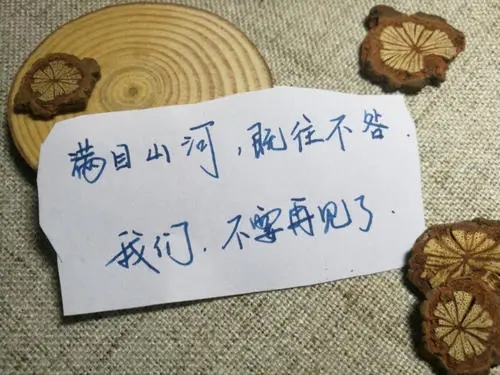 满目山河,既往不答.
我们.不要再见了.